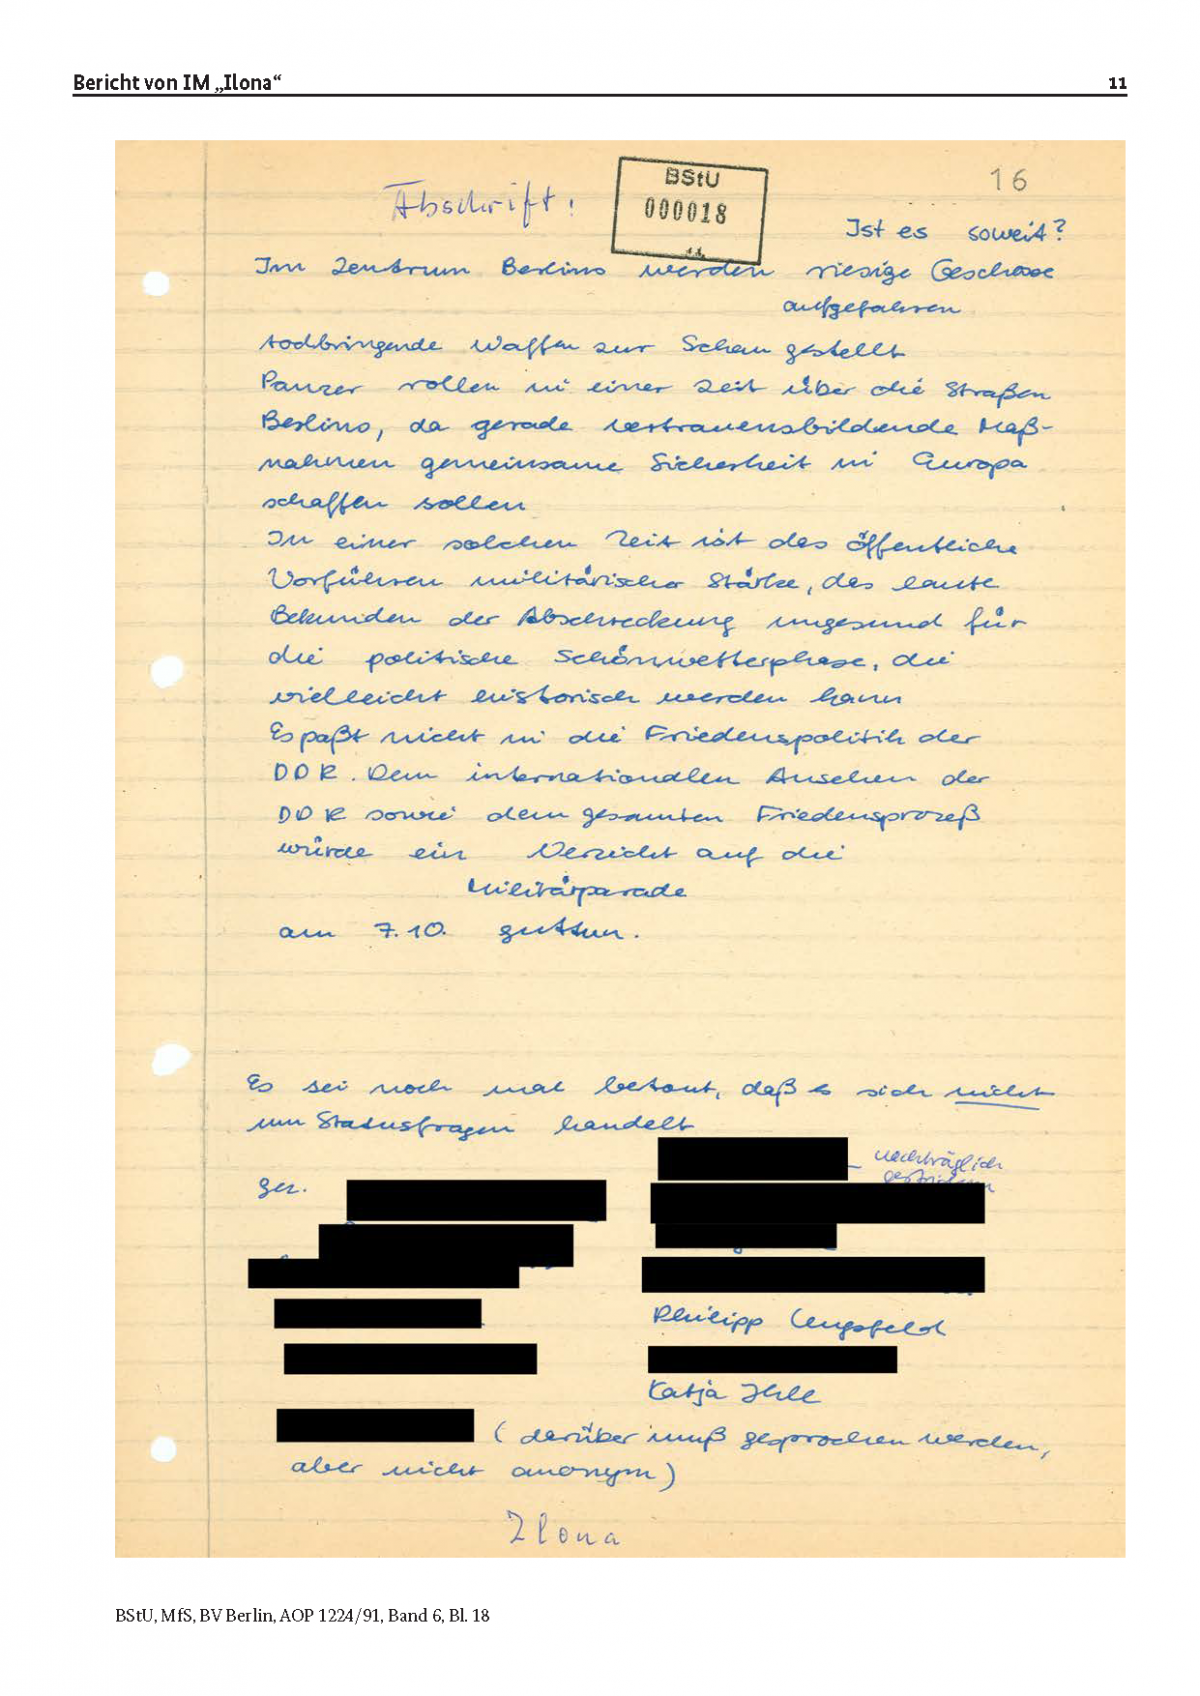 Bericht von IM „Ilona“ 11
Abschrift!
BStU
000018
16
Ist es soweit?
Im Zentrum Berlins werden riesige Geschosse
aufgefahren
todbringende Waffen zur Schau gestellt
Panzer rollen in einer Zeit über die Straßen
Berlins, da gerade vertrauensbildende Maß-
nahmen gemeinsame Sicherheit in Europa
schaffen sollen
In einer solchen Zeit ist das öffentliche
Vorführen militärischer Stärke, das laute
Bekunden der Abschreckung ungesund für
die politische Schönwetterphase, die
vielleicht historisch werden kann
Es paßt nicht in die Friedenspolitik der
DDR. Dem internationalen Ansehen der
DDR sowie dem gesamten Friedensprozeß
würde ein Verzicht auf die
Militärparade
am 7.10. guttun.
Es sei noch mal betont, daß es sich nicht
um Statusfragen handelt
– nachträglich
gestrichen
gez.
Philipp Lengsfeld
Katja Ihle
( darüber muß gesprochen werden,
aber nicht anonym)
Ilona
BStU, MfS, BV Berlin, AOP 1224/91, Band 6, Bl. 18